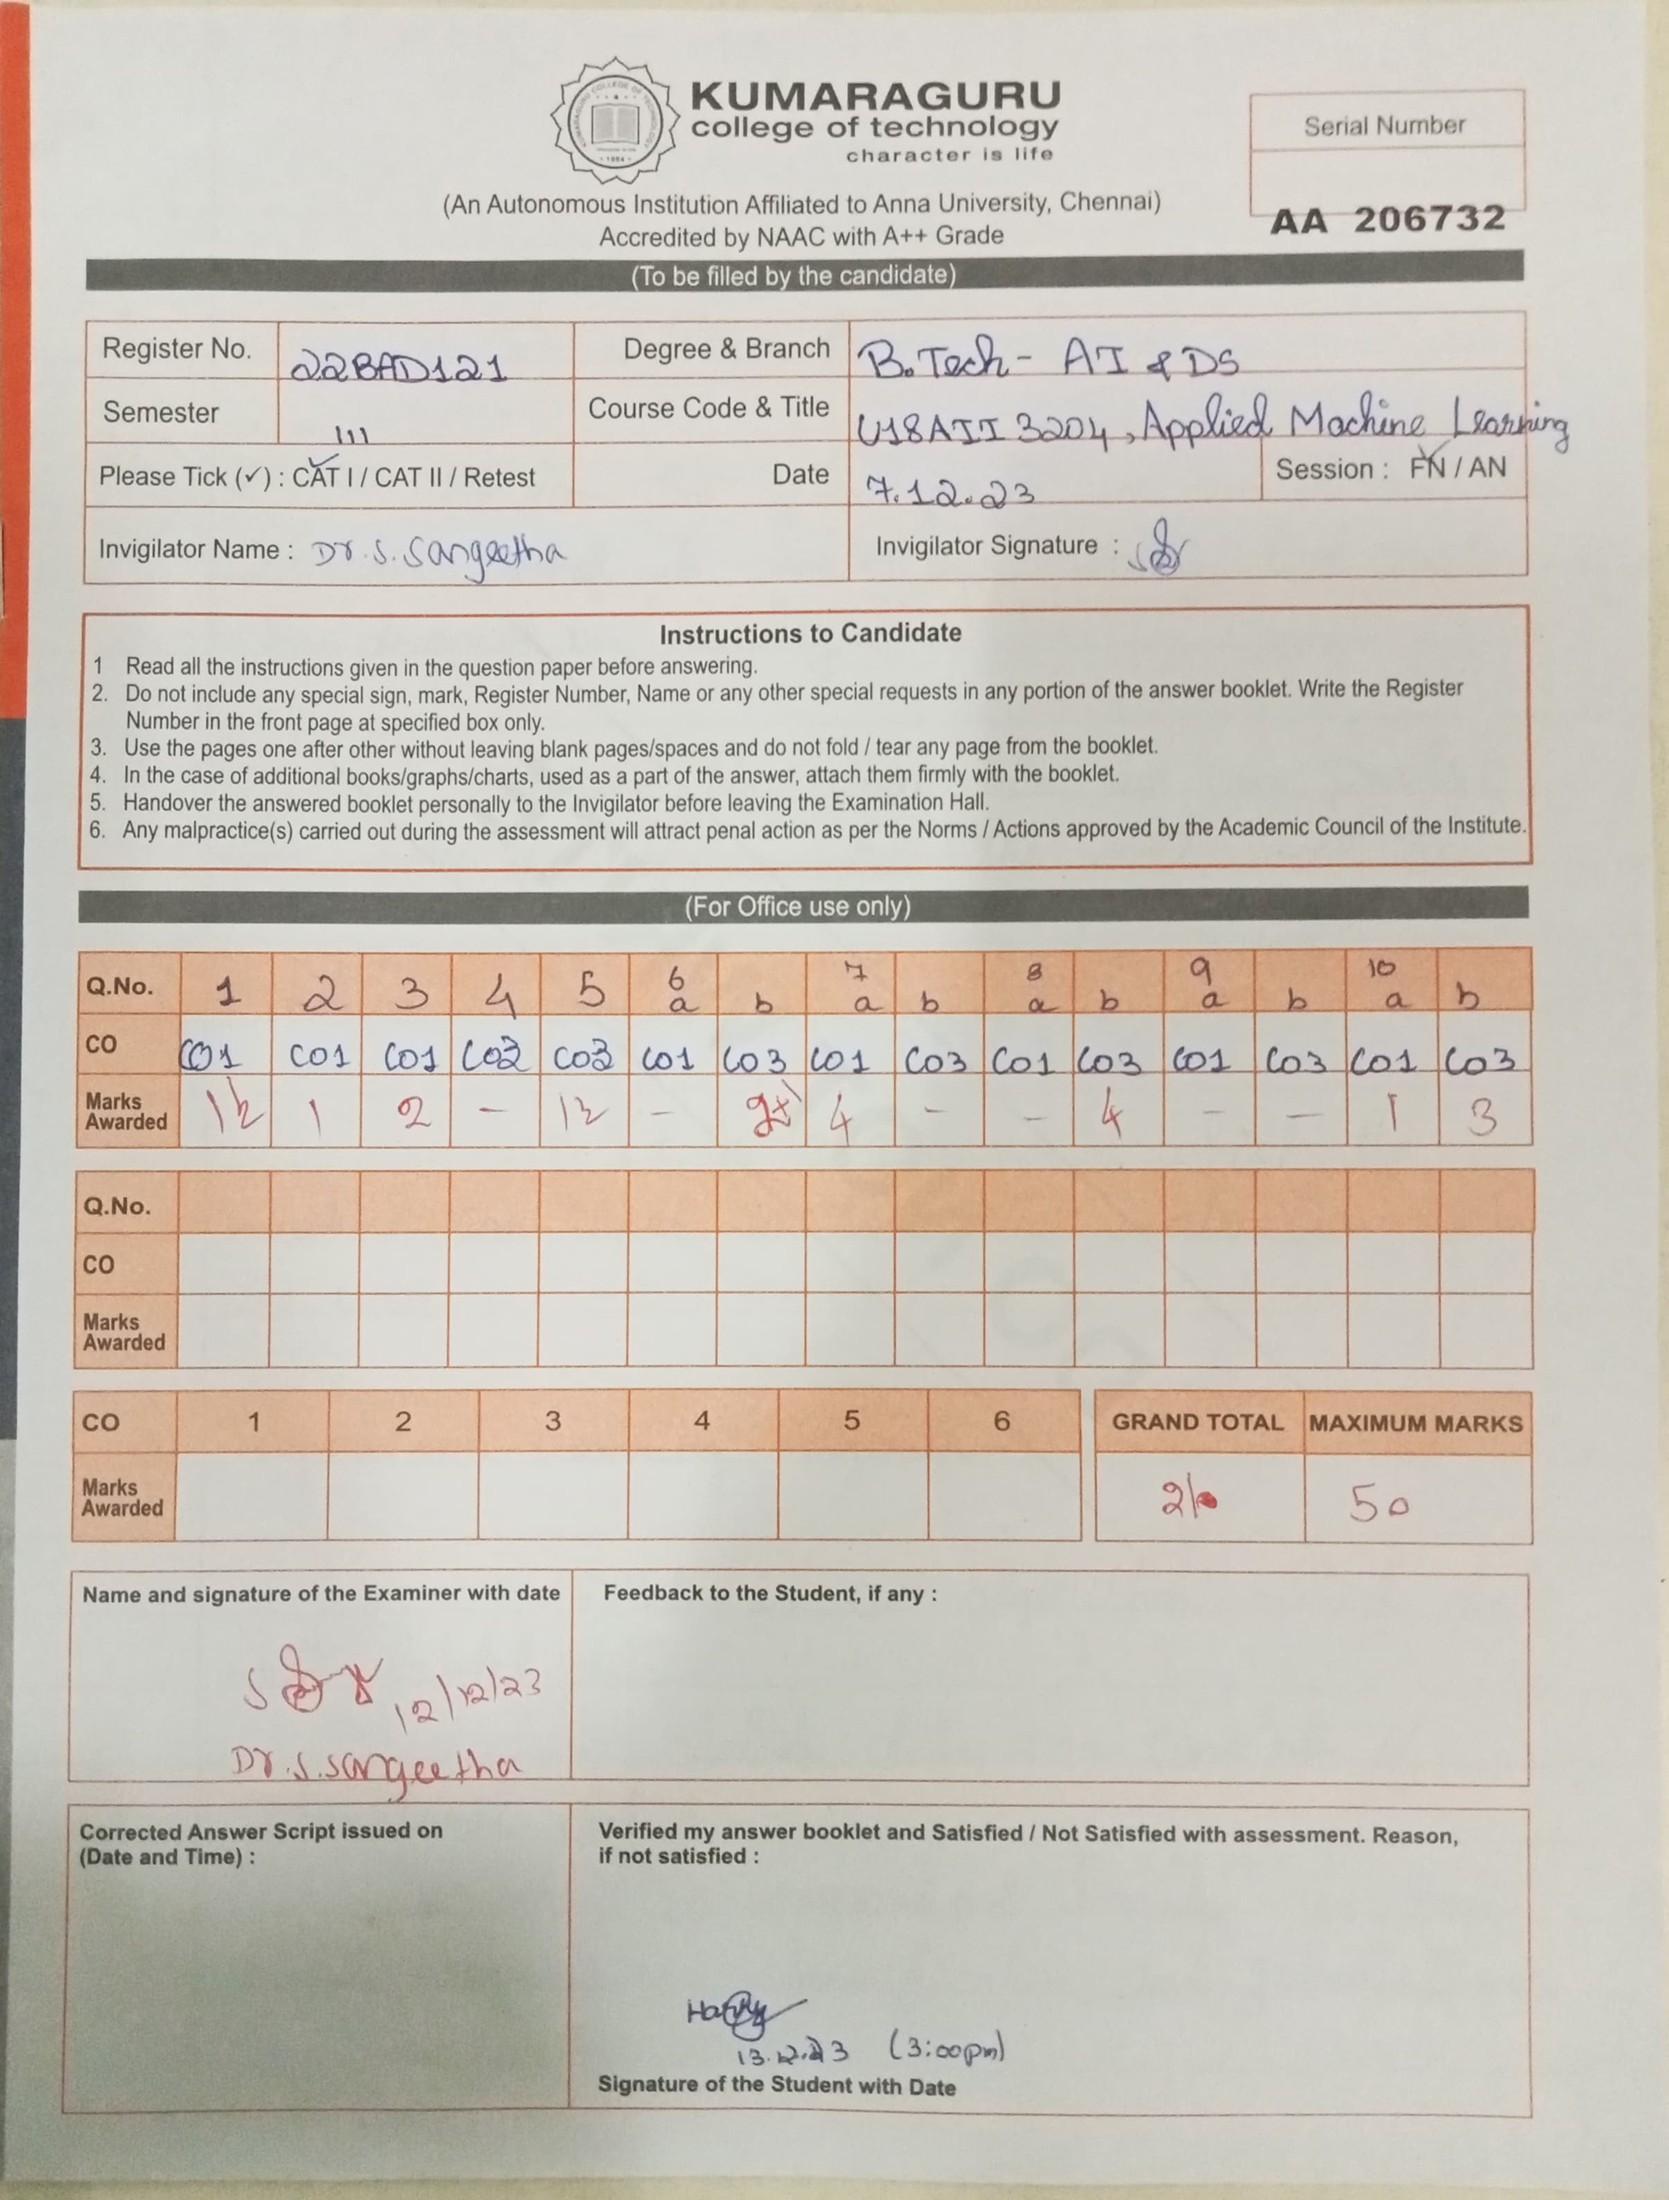 KUMARAGURU
college of technology
character is life
(An Autonomous Institution Affiliated to Anna University, Chennai)
Accredited by NAAC with A++ Grade
Serial Number
AA 206732
(To be filled by the candidate)
Register No. 22BAD121 Degree & Branch B.Tech - AI & DS
Semester III Course Code & Title U18AII3204, Applied Machine Learning
Please Tick (✓) : CAT I / CAT II / Retest Date 7.12.23 Session : FN / AN
Invigilator Name : Dr. S. Sangeetha Invigilator Signature :
Instructions to Candidate
1 Read all the instructions given in the question paper before answering.
2. Do not include any special sign, mark, Register Number, Name or any other special requests in any portion of the answer booklet. Write the Register
Number in the front page at specified box only.
3. Use the pages one after other without leaving blank pages/spaces and do not fold / tear any page from the booklet.
4. In the case of additional books/graphs/charts, used as a part of the answer, attach them firmly with the booklet.
5. Handover the answered booklet personally to the Invigilator before leaving the Examination Hall.
6. Any malpractice(s) carried out during the assessment will attract penal action as per the Norms / Actions approved by the Academic Council of the Institute.
(For Office use only)
Q.No. 1 2 3 4 5 6 a b 7 a b 8 a b 9 a b 10 a b
CO CO1 CO1 CO1 CO1 CO3 CO1 CO3 CO1 CO3 CO1 CO3 CO1 CO3
Marks Awarded 1 2 - - 4 - - 4 - - 1 3
Q.No.
CO
Marks
Awarded
CO 1 2 3 4 5 6 GRAND TOTAL MAXIMUM MARKS
Marks
Awarded 50
Name and signature of the Examiner with date
12/12/23
Dr. S. Sangeetha
Feedback to the Student, if any :
Corrected Answer Script issued on
(Date and Time) :
Verified my answer booklet and Satisfied / Not Satisfied with assessment. Reason,
if not satisfied :
13.12.23 (3:00pm)
Signature of the Student with Date